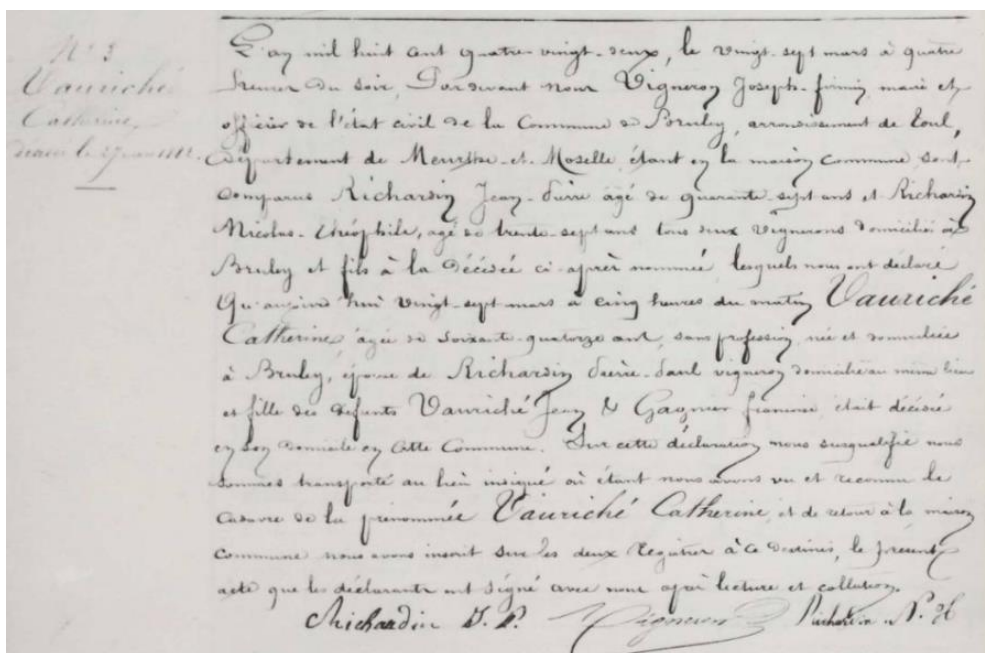 N° 3
Vauriché
Catherine,
décédée le 27 mars 1882.
L'an mil huit cent quatre-vingt-deux, le vingt-sept mars à quatre
heures du soir, Pardevant nous Vigneron Joseph-firmin, maire et
officier de l'état civil de la Commune de Bruley, arrondissement de Toul,
département de Meurthe-et-Moselle, étant en la maison commune sont
comparus Richardin Jean-Pierre âgé de quarante-sept ans et Richardin
Nicolas-Théophile, âgé de trente-sept ans tous deux Vignerons domiciliés à
Bruley et fils à la décédée ci-après nommée, lesquels nous ont déclaré
Qu'aujourd'hui vingt-sept mars à cinq heures du matin Vauriché
Catherine âgée de soixante-quatorze ans, sans profession, née et domiciliée
à Bruley, épouse de Richardin Pierre-Paul vigneron domicilié au même lieu
et fille des défunts Vauriché Jean & Gagneur françoise, était décédée
en son domicile en cette Commune. Sur cette déclaration nous susqualifié nous
sommes transporté au lieu insiqué où étant nous avons vu et reconnu le
cadavre de la prénommée Vauriché Catherine, et de retour à la maison
commune nous avons inscrit sur les deux registres à ce destinés, le présent
acte que les déclarants ont signé avec nous après lecture et collation.
Richardin J. P. Vigneron Richardin N. Th